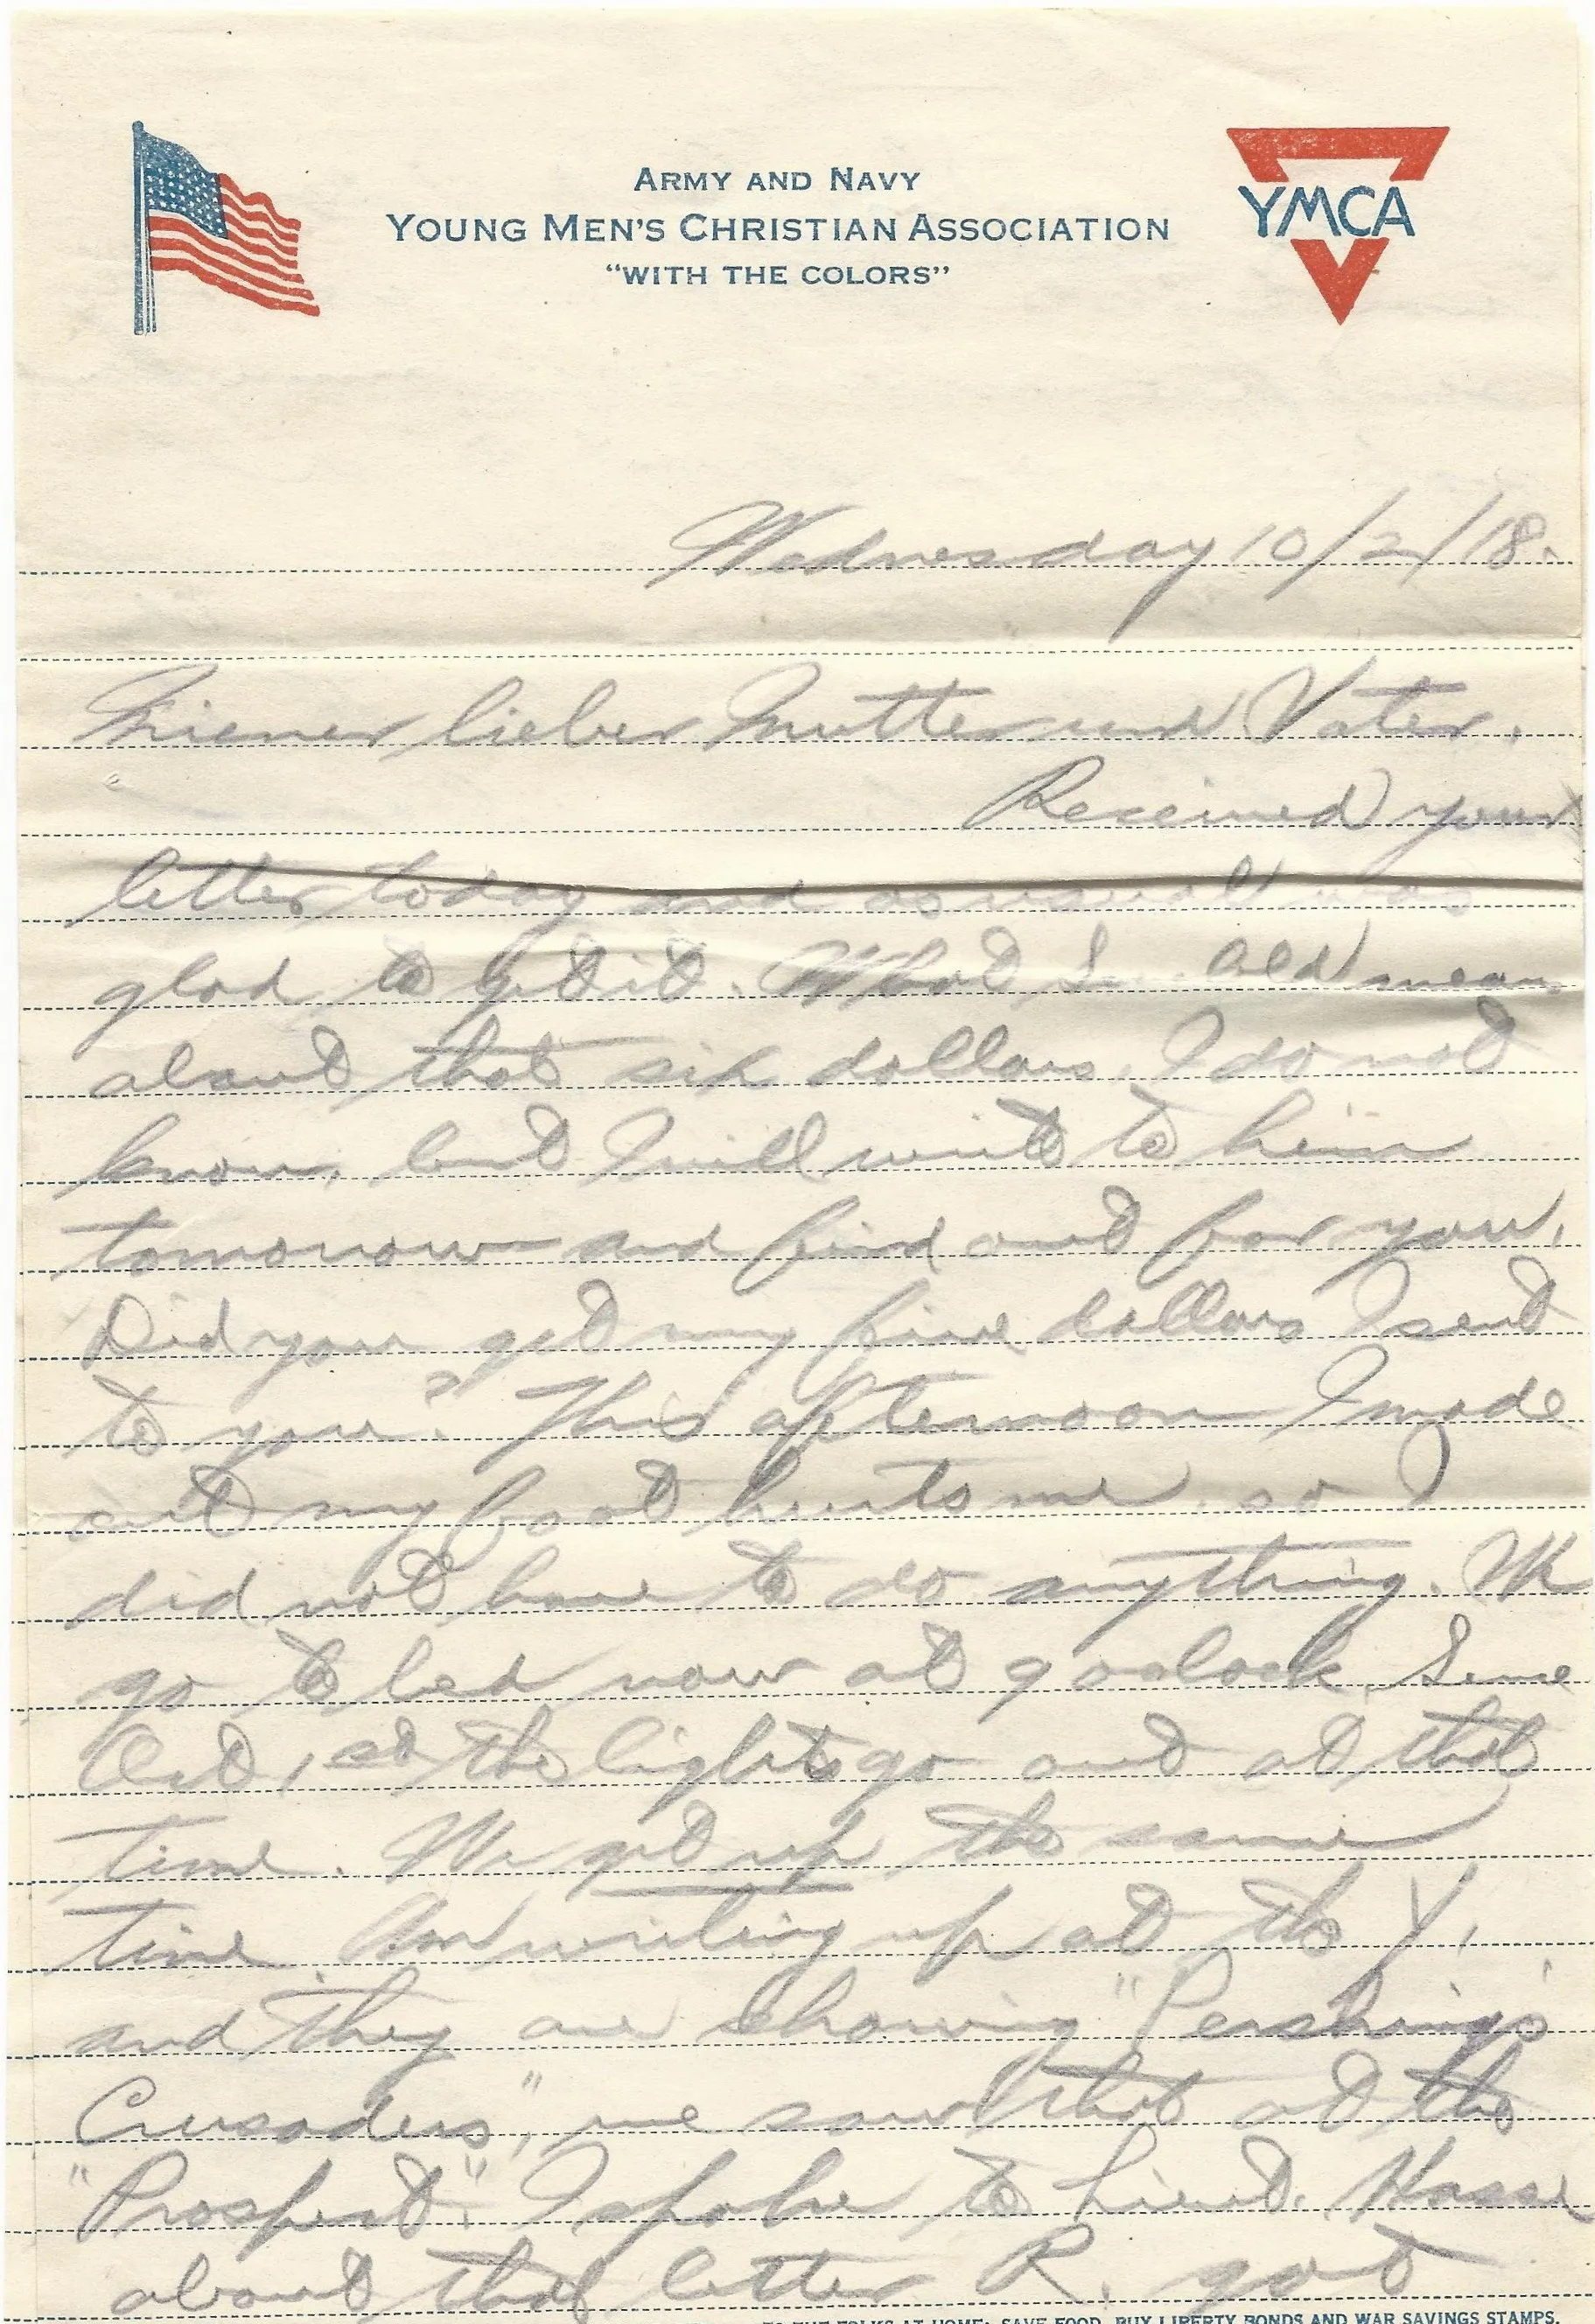 ARMY AND NAVY
YOUNG MEN'S CHRISTIAN ASSOCIATION
"WITH THE COLORS"
YMCA
Wednesday 10/2/18.
Miener lieber Mutter und Vater.
Received your
letter today and as usual was
glad to get it. What mean
about that six dollars, I do not
know, but I will write to him
tomorrow and find out for you.
Did you get my five dollars I sent
to you? This afternoon I made
out my foot hurts me, so I
did not have to do anything. We
go to bed now at 9 o'clock. Since
Oct, 1st the lights go out at that
time. We get up the same
time. Am writing up at the Y,
and they are showing "Pershing's
Crusaders," we saw that at the
"Prospect". I spoke to Lieut. Hasse
about that letter R. got
TO THE FOLKS AT HOME: SAVE FOOD, BUY LIBERTY BONDS AND WAR SAVINGS STAMPS.